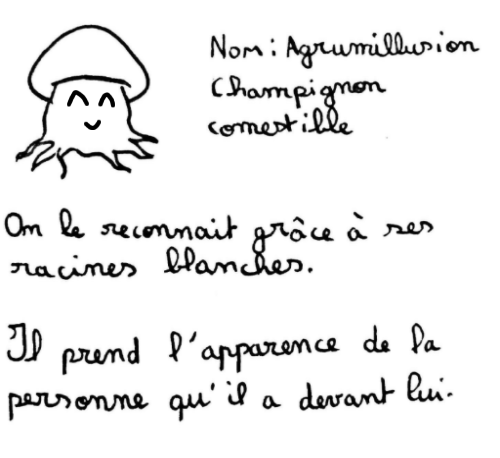 Nom : Agrumillusion
Champignon
comestible
On le reconnait grâce à ses
racines blanches.
Il prend l'apparence de la
personne qu'il a devant lui.